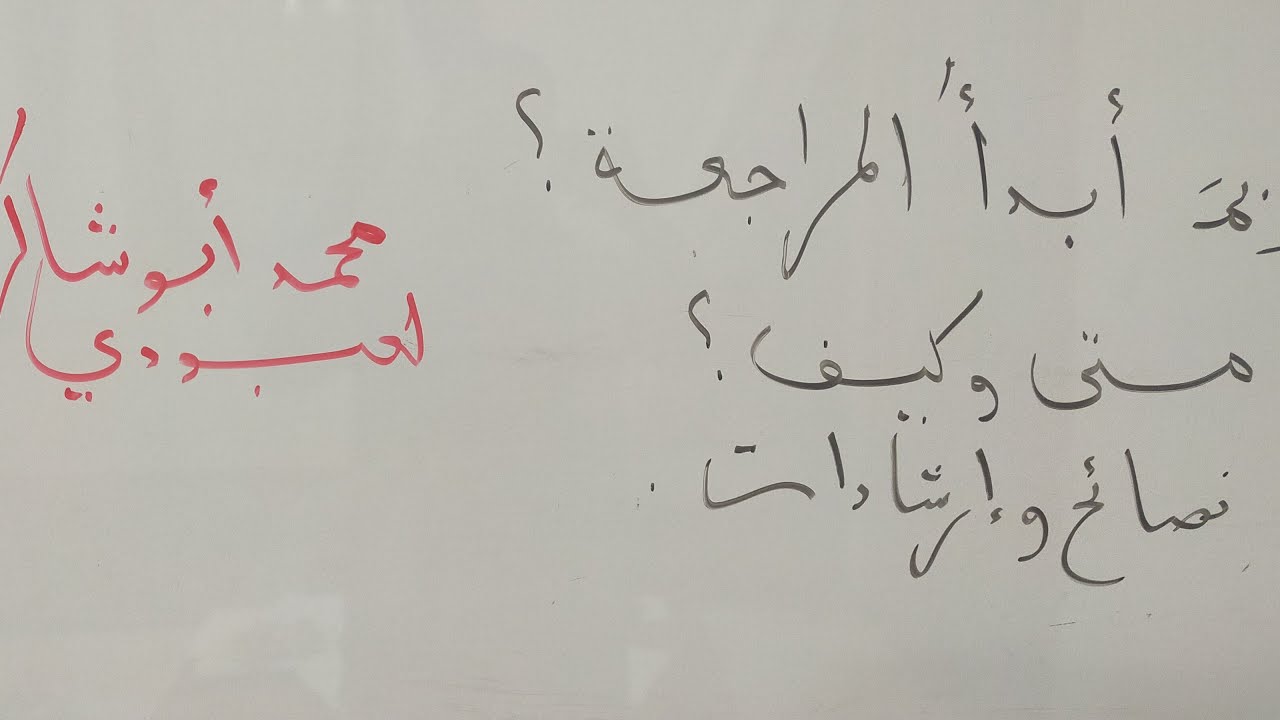 أبدأُ المراجعة ؟
متى وكيف ؟
نصائح وإرشادات .
محمد أبو شاكر
لعبودي